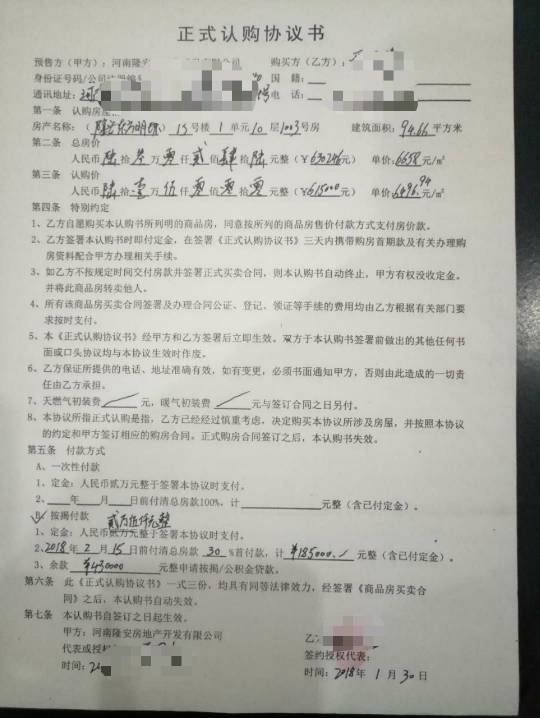 正式认购协议书
预售方（甲方）：河南隆安 购买方（乙方）：
身份证号码/公司注册编 国 籍：
通讯地址： 号 电 话：
第一条 认购房屋
房产名称：（隆安东方明珠）15号楼 1 单元 10 层 1003号房 建筑面积：94.66 平方米
第二条 总房价
人民币 陆 拾 叁 万 零 仟 贰 佰 肆 拾 陆 元整（¥630246元） 单价：6658 元/㎡
第三条 认购价
人民币 陆 拾 壹 万 伍 仟 零 佰 零 拾 零 元整（¥615000元） 单价：6496.94 元/㎡
第四条 特别约定
1、乙方自愿购买本认购书所列明的商品房，同意按所列的商品房售价付款方式支付房价款。
2、乙方签署本认购书时即付定金，在签署《正式认购协议书》三天内携带购房首期款及有关办理购
房资料配合甲方办理相关手续。
3、如乙方不按规定时间交付房款并签署正式买卖合同，则本认购书自动终止，甲方有权没收定金。
并将此商品房转卖他人。
4、所有该商品房买卖合同签署及办理合同公证、登记、领证等手续的费用均由乙方根据有关部门要
求按时支付。
5、本《正式认购协议书》经甲方和乙方签署后立即生效。双方于本认购书签署前做出的其他任何书
面或口头协议均与本协议生效时作废。
6、乙方保证所提供的电话、地址准确有效，如有变更，必须书面通知甲方，否则由此造成的一切责
任由乙方承担。
7、天燃气初装费 元，暖气初装费 元与签订合同之日另付。
8、本协议所指正式认购是指，乙方已经经过慎重考虑，决定购买本协议所涉及房屋，并按照本协议
的约定和甲方签订相应的购房合同。正式购房合同签订之后，本认购书失效。
第五条 付款方式
A、一次性付款
1、定金：人民币贰万元整于签署本协议时支付。
2、 年 月 日前付清总房款100%、计 元整（含已付定金）。
B、按揭付款 贰万伍仟元整
1、定金：人民币贰万元整于签署本协议时支付。
2、2018 年 2 月 15 日前付清总房款 30 %首付款，计 ¥185000. 元整（含已付定金）。
3、余款 ¥430000 元整申请按揭/公积金贷款。
第六条 此《正式认购协议书》一式三份，均具有同等法律效力，经签署《商品房买卖合
同》之后，本认购书自动失效。
第七条 本认购书自签订之日起生效。
甲方：河南隆安房地产开发有限公司 乙
代表或授 签约授权代表：
时间：2 时间：2018 年 1 月 30 日